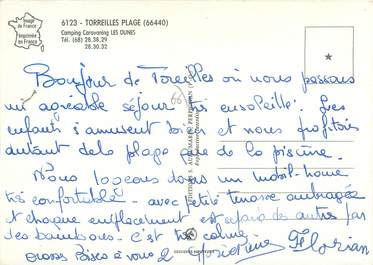 Image de France
Imprimée en France
6123 - TORREILLES PLAGE (66440)
Camping Caravaning LES DUNES
Tél. (68) 28.38.29
28.30.32
Bonjour de Toreilles où nous passons
un agréable séjour très ensoleillé. Les
enfants s'amusent bien et nous profitons
autant de la plage que de la piscine.
Nous logeons dans un mobil-home
très confortable - avec petite terrasse ombragée
et chaque emplacement est séparé des autres par
des bambous - C'est très calme
Grosses Bises à vous 2
Florian
(66)